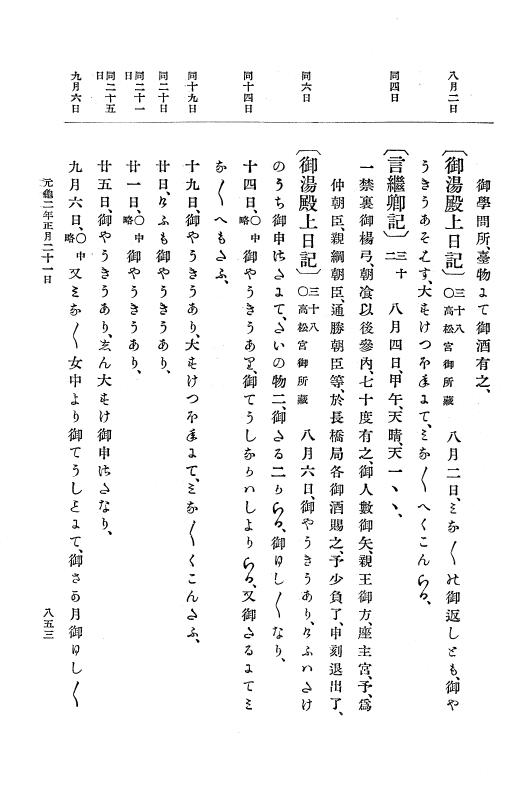 八月二日
同四日
同六日
同十四日
同十九日
同二十日
同二十一日
同二十五日
九月六日
御學問所、臺物にて御酒有之、
〔御湯殿上日記〕三十八 ○高松宮御所藏 八月二日、みな〳〵の御返しとも、御や
うきうあそはす、大すけつほねにて、みな〳〵へくこんまいる、
〔言繼卿記〕三十二 八月四日、甲午、天晴、天一ヽヽ、
一禁裏御楊弓、朝飡以後參內、七十度有之、御人數御矢、親王御方、座主宮、予、爲
仲朝臣、親綱朝臣、通勝朝臣等、於長橋局各御酒賜之、予少負了、申刻退出了、
〔御湯殿上日記〕三十八 ○高松宮御所藏 八月六日、御やうきうあり、けふハさけ
のうち御申さたにて、さいの物二、御さる二まいる、御ゆし〳〵なり、
十四日、○中略 御やうきうあり、御てうしなかハしよりまいる、又御さるにてみ
な〳〵へもたふ、
十九日、御やうきうあり、大すけつほねにて、みな〳〵くこんたふ、
廿日、けふも御やうきうあり、
廿一日、○中略 御やうきうあり、
廿五日、御やうきうあり、しん大すけ御申さたなり、
九月六日、○中略 又みな〳〵女中より御てうしとにて、御さか月御ゆし〳〵
元龜二年正月二十一日
八五三